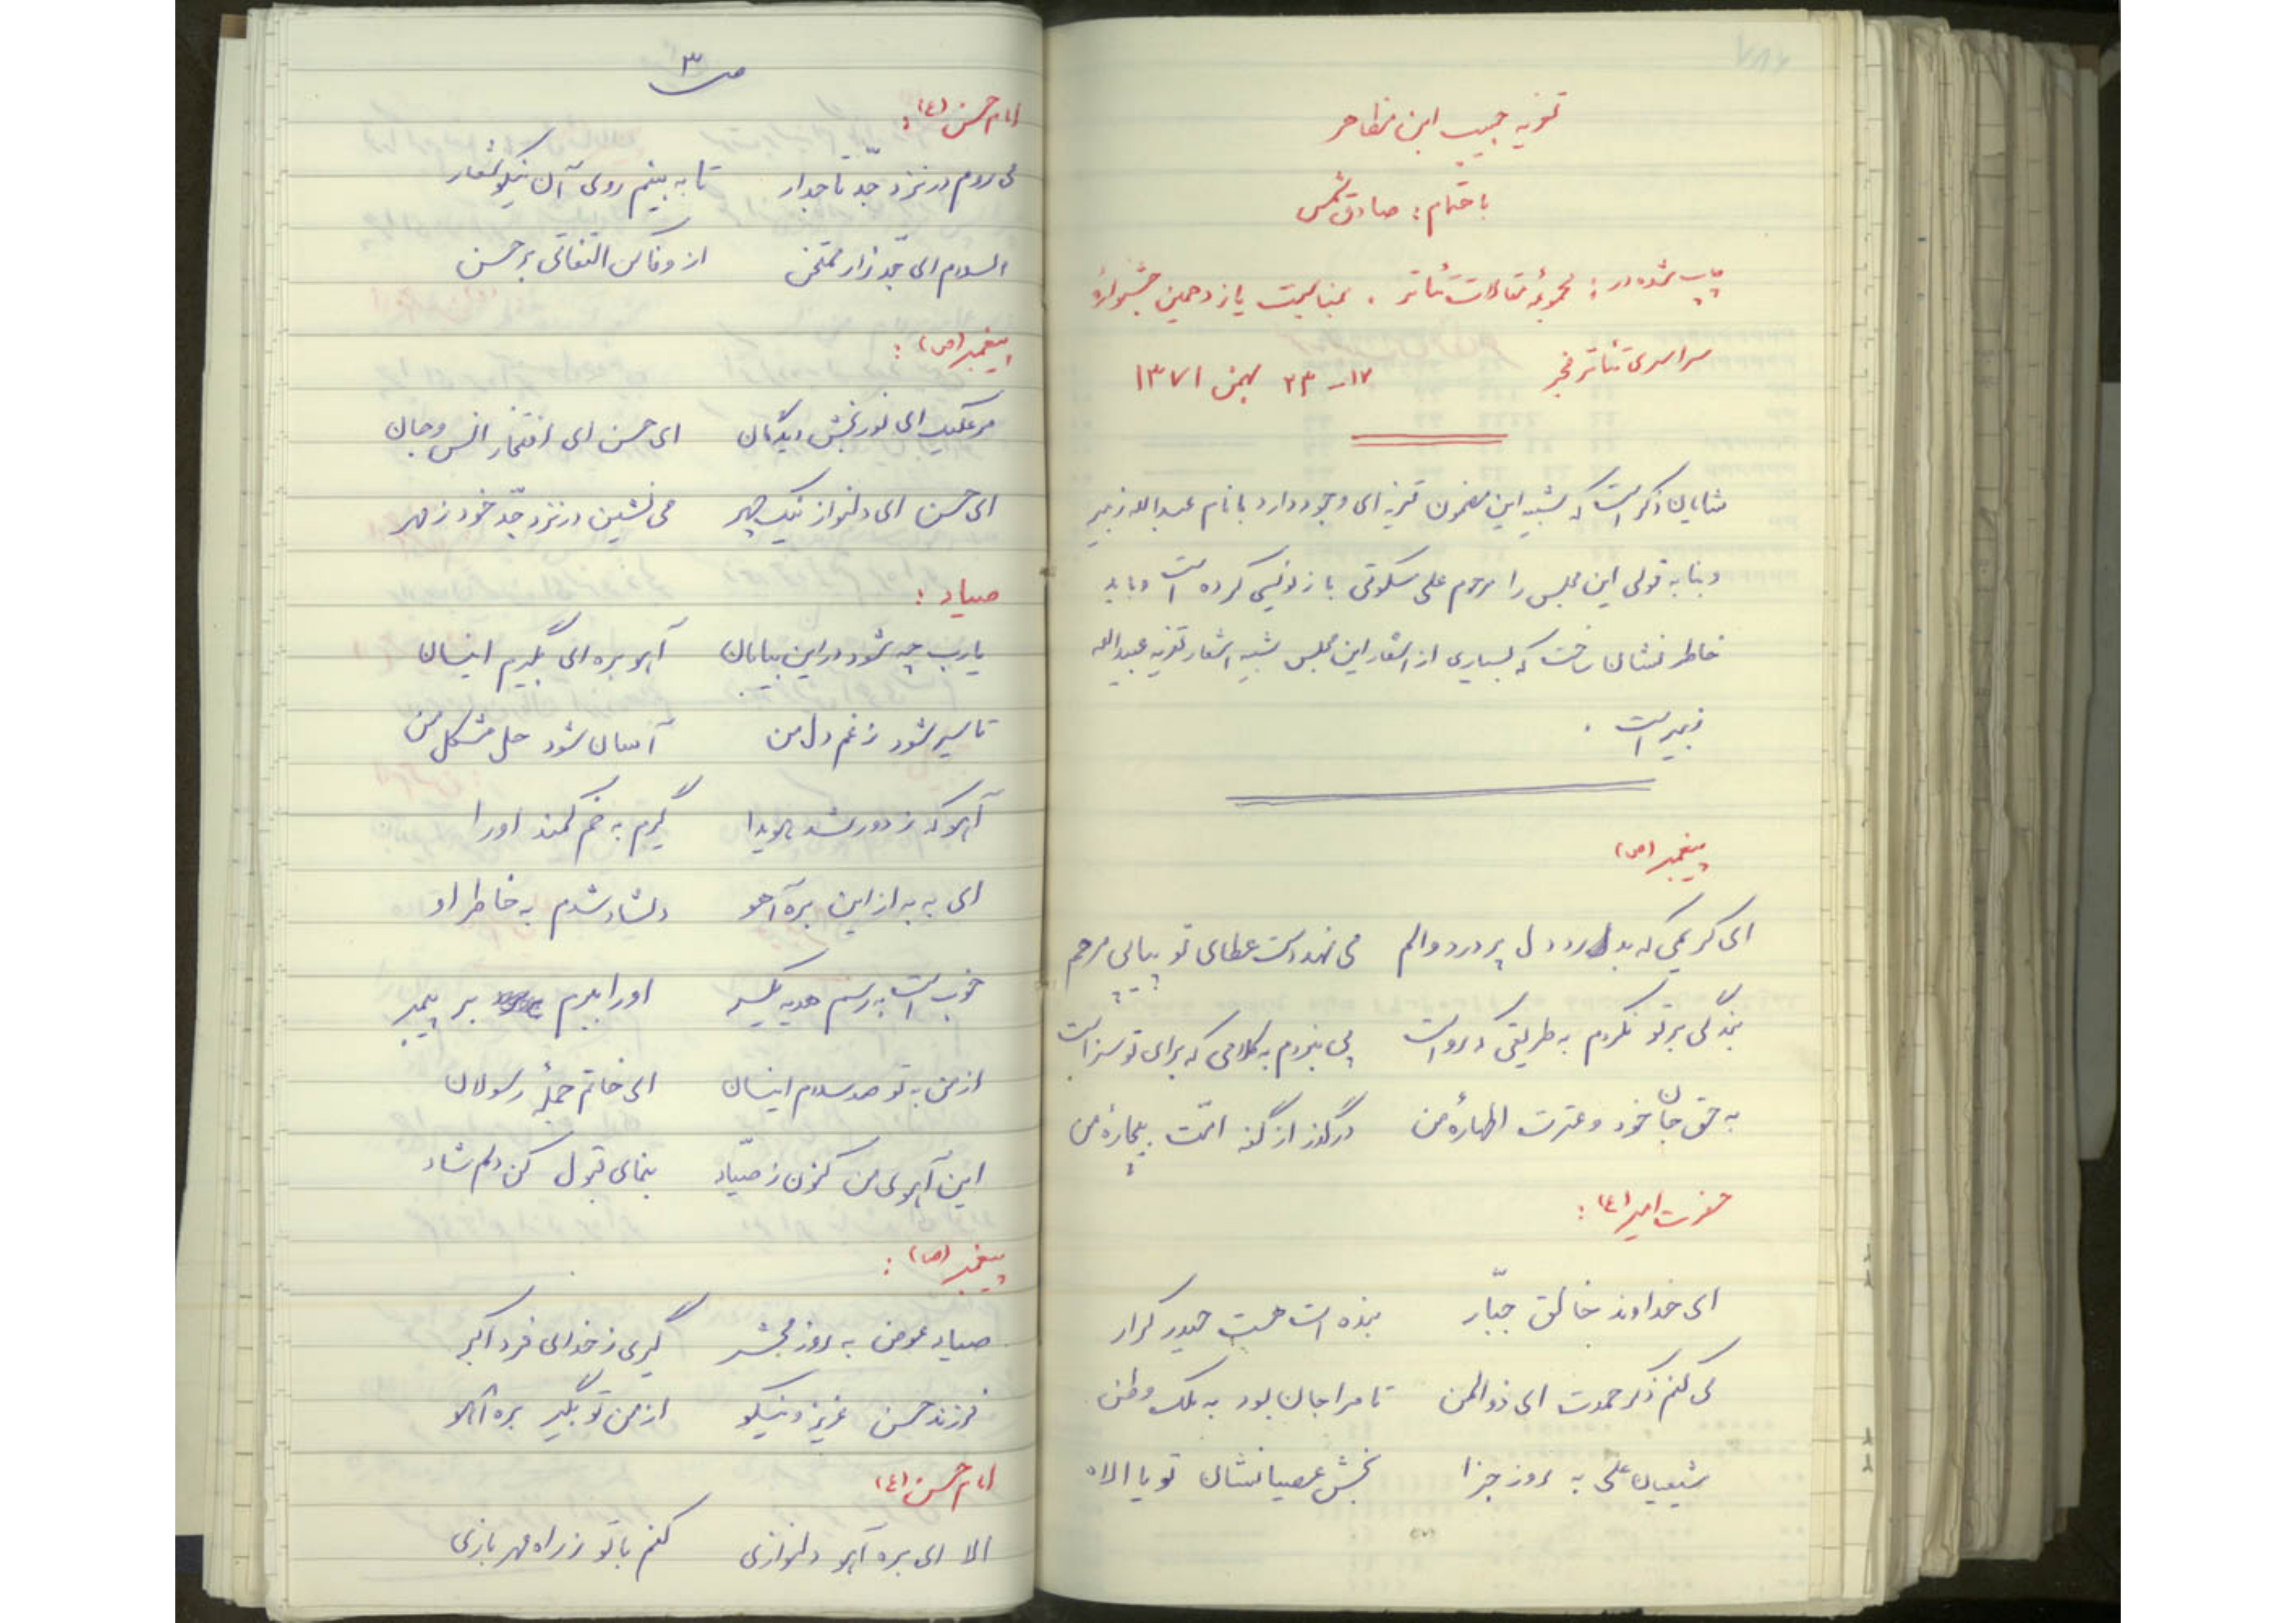 تعزیه حبیب ابن مظاهر
باهتمام: صادق شمس
چاپ شده در: مجموعه مقالات تئاتر. بمناسبت یازدهمین جشنوارهٔ
سراسری تئاتر فجر ۱۷ - ۲۳ بهمن ۱۳۷۱
شایان ذکر است که شبیه این مضمون تعزیه ای وجود دارد با نام عبدالله زبیر
و بنا به قولی این مجلس را مرحوم علی سکوتی بازنویسی کرده است و باید
خاطر نشان ساخت که بسیاری از اشعار این مجلس شبیه اشعار تعزیه عبدالله
زبیر است .
پیغمبر (ص)
ای کریمی که به دل پر درد و الم می نهد دست عطای تو پیاپی مرحم
بندگی بر تو نکردم به طریقی که رواست پی نبردم به کلامی که برای تو سزاست
به حق جان خود و عترت اطهارهٔ من درگذر از گنه امّت بیچارهٔ من
حضرت امیر (ع) :
ای خداوند خالق جبّار بنده است هست حیدر کرار
می کنم ذکر حمدت ای ذوالمن تا مرا جان بود به ملک وطن
شیعیان علی به روز جزا بخش عصیانشان تو یا الاه
ص ۳
امام حسن (ع) :
می روم در نزد جدّ تاجدار تا به بینم روی آن نیکو شعار
السلام ای جدّ زار ممتحن از وفا کن التفاتی بر حسن
پیغمبر (ص) :
مر علیک ای نور بخش دیدگان ای حسن ای افتخار انس و جان
ای حسن ای دلنواز نیک چهر می نشین در نزد جدّ خود ز مهر
صیاد :
یا رب چه شود در این بیابان آهو بره ای بگیرم اینسان
تا سیر شود ز غم دل من آسان شود حل مشکل من
آهو که ز دور شد هویدا گیرم به خم کمند او را
ای به به از این بره آهو دلشاد شدم به خاطر او
خوب است به رسم هدیه یکسر او را ببرم بر پیمبر
از من به تو صد سلام اینسان ای خاتم جملهٔ رسولان
این آهوی من کنون ز صیّاد بنمای قبول کن دلم شاد
پیغمبر (ص) :
صیاد عوض به روز محشر گیری ز خدای فرد اکبر
فرزند حسن عزیز و نیکو از من تو بگیر بره آهو
امام حسن (ع)
الا ای بره آهو دلنوازی کنم با تو ز راه مهر بازی